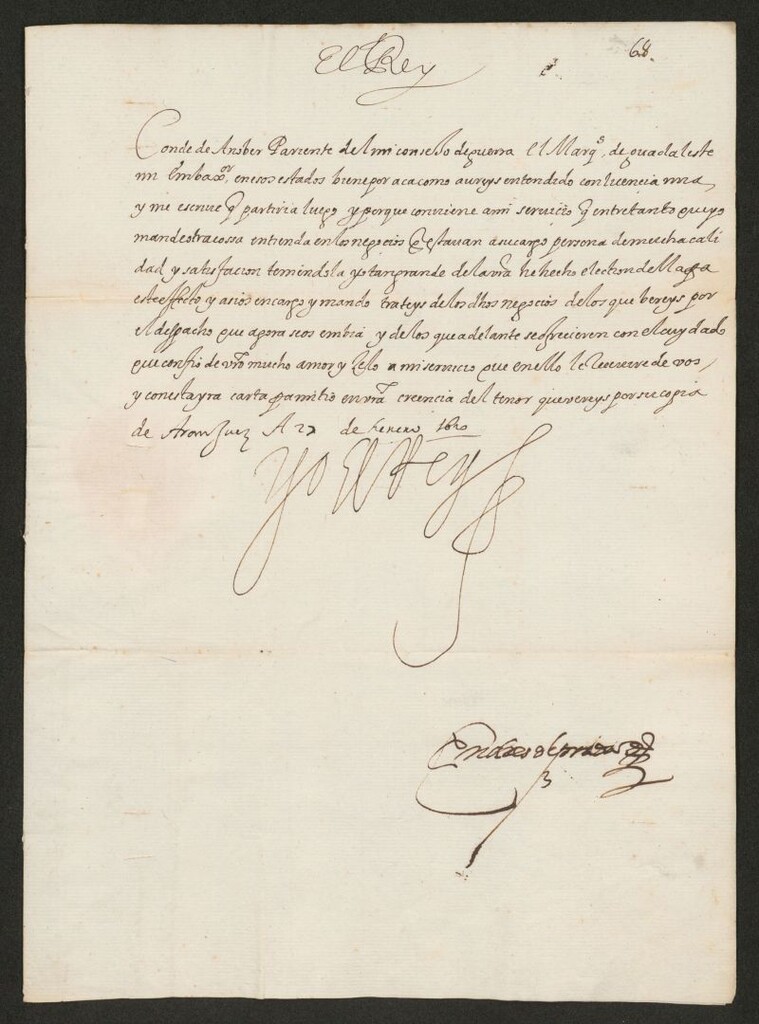 El Rey
68.
Conde de Anober Pariente del mi conseJo de guerra El Marq.s de guadaleste
mi Embax.or en esos estados biene por aca como aureys entendido con licencia mia,
y me escriue q partiria luego y porque conuiene a mi seruicio q entretanto que yo
mande otra cossa entienda en los negocios q estauan a su cargo persona de mucha cali
dad y satisfacion teniendola yo tan grande de la vrã he hecho election della para
este effecto y assi os encargo y mando trateys de los dhos negocios de los que vereys por
el despacho que agora se os embia y de los que adelante se ofrecieren con el cuydado
que confio de vrõ mucho amor y zelo a mi seruicio que en ello le receuire de vos,
y con esta yra carta para mi tio en vrã creencia del tenor que vereys por su copia
de AranJuez A 27 de henero 1610
Yo el Rey
Andres de prada